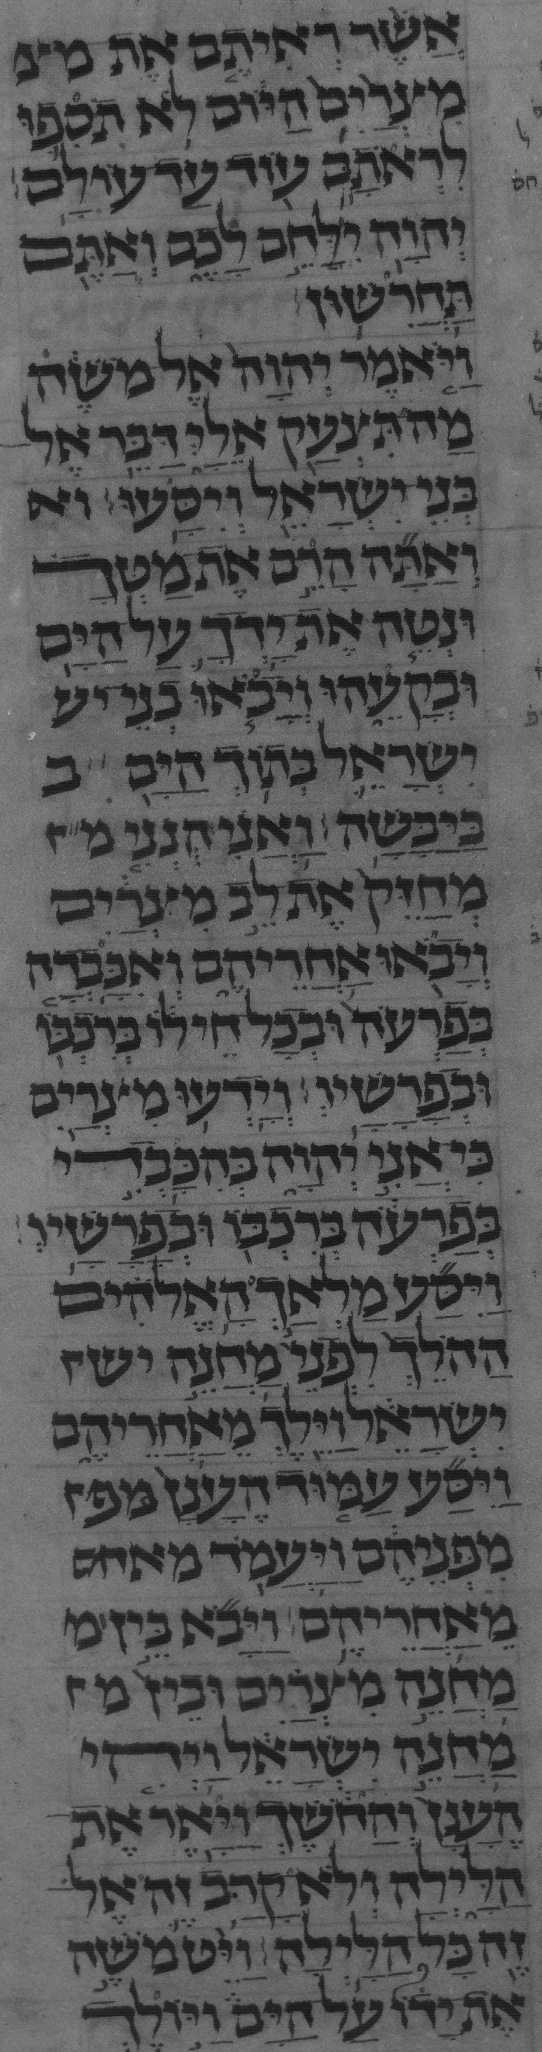 אשר ראיתם את מצ
מצרים היום לא תספו
לראתם עוד עד עולם
יהוה ילחם לכם ואתם
תחרשון
ויאמר יהוה אל משה
מה תצעק אלי דבר אל
בני ישראל ויסעו וא
ואתה הרם את מטך
ונטה את ידך על הים
ובקעהו ויבאו בני יש
ישראל בתוך הים ב
ביבשה ואני הנני מ
מחזק את לב מצרים
ויבאו אחריהם ואכבדה
בפרעה ובכל חילו ברכבו
ובפרשיו וידעו מצרים
כי אני יהוה בהכבדי
בפרעה ברכבו ובפרשיו
ויסע מלאך האלהים
ההלך לפני מחנה יש
ישראל וילך מאחריהם
ויסע עמוד הענן מפ
מפניהם ויעמד מאח
מאחריהם ויבא בין מ
מחנה מצרים ובין מ
מחנה ישראל ויהי
הענן והחשך ויאר את
הלילה ולא קרב זה אל
זה כל הלילה ויט משה
את ידו על הים ויולך